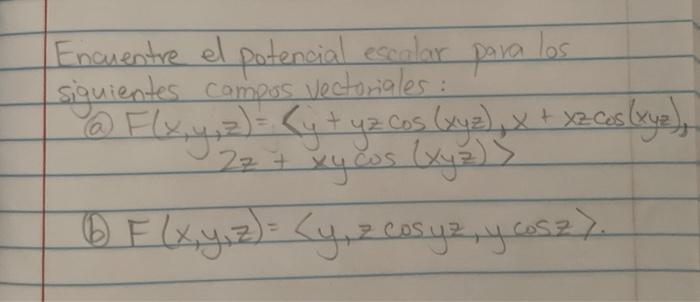 Encuentre el potencial escalar para los
siguientes campos vectoriales:
ⓐ F(x,y,z)= <y + yz cos (xyz), x + xz cos(xyz),
2z + xy cos (xyz)>
ⓑ F (x,y,z)= <y, z cos yz, y cos z>.